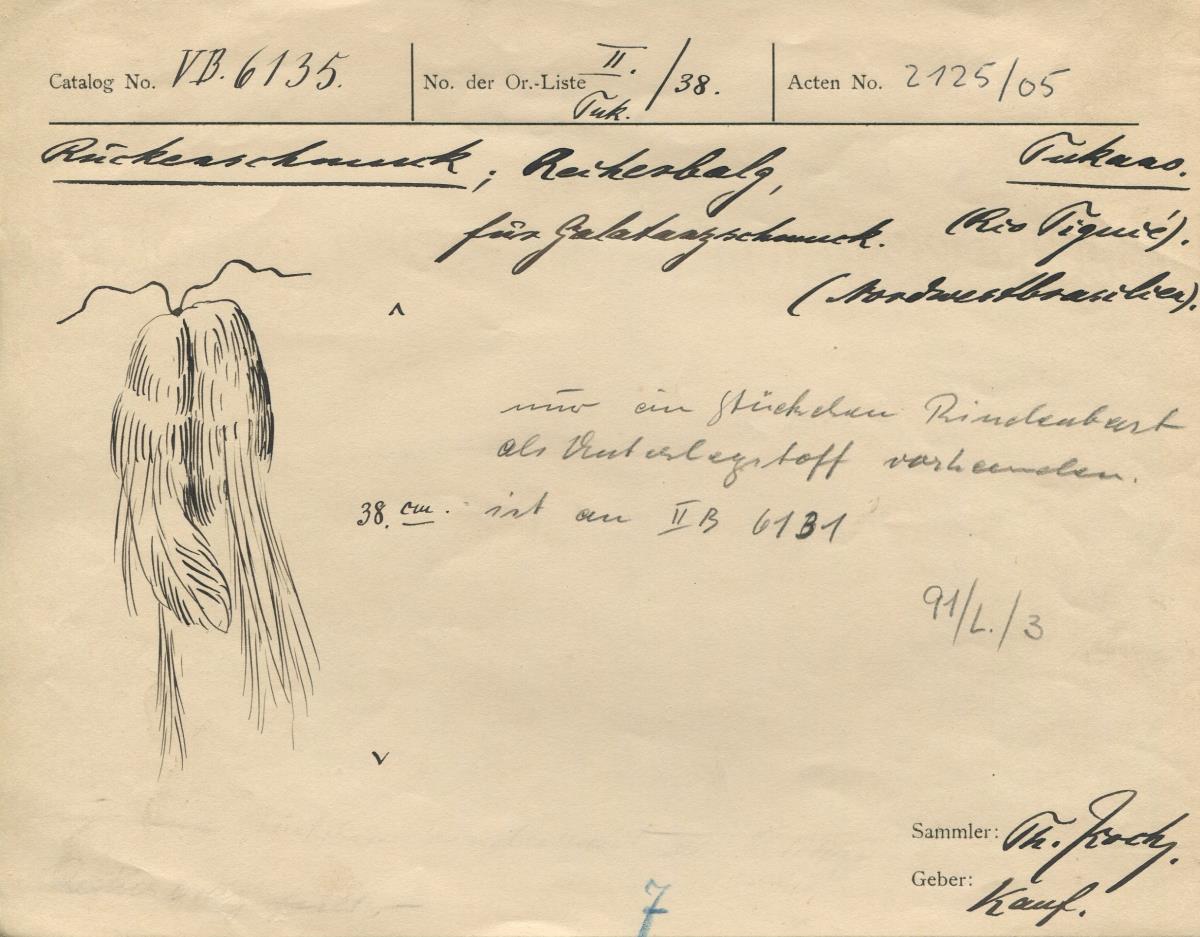 Catalog No. VB. 6135. No. der Or.-Liste II. Tuk. /38. Acten No. 2125/05
Rückenschmuck; Reiherbalg, Tukano.
für Galatanzschmuck. (Rio Tiquié).
(Nordwestbrasilien).
nur ein Stückchen Rindenbast
als Unterlagstoff vorhanden.
38. cm. ist an II B 6131
91/L./3
Sammler: Th. Koch.
Geber: Kauf.
7